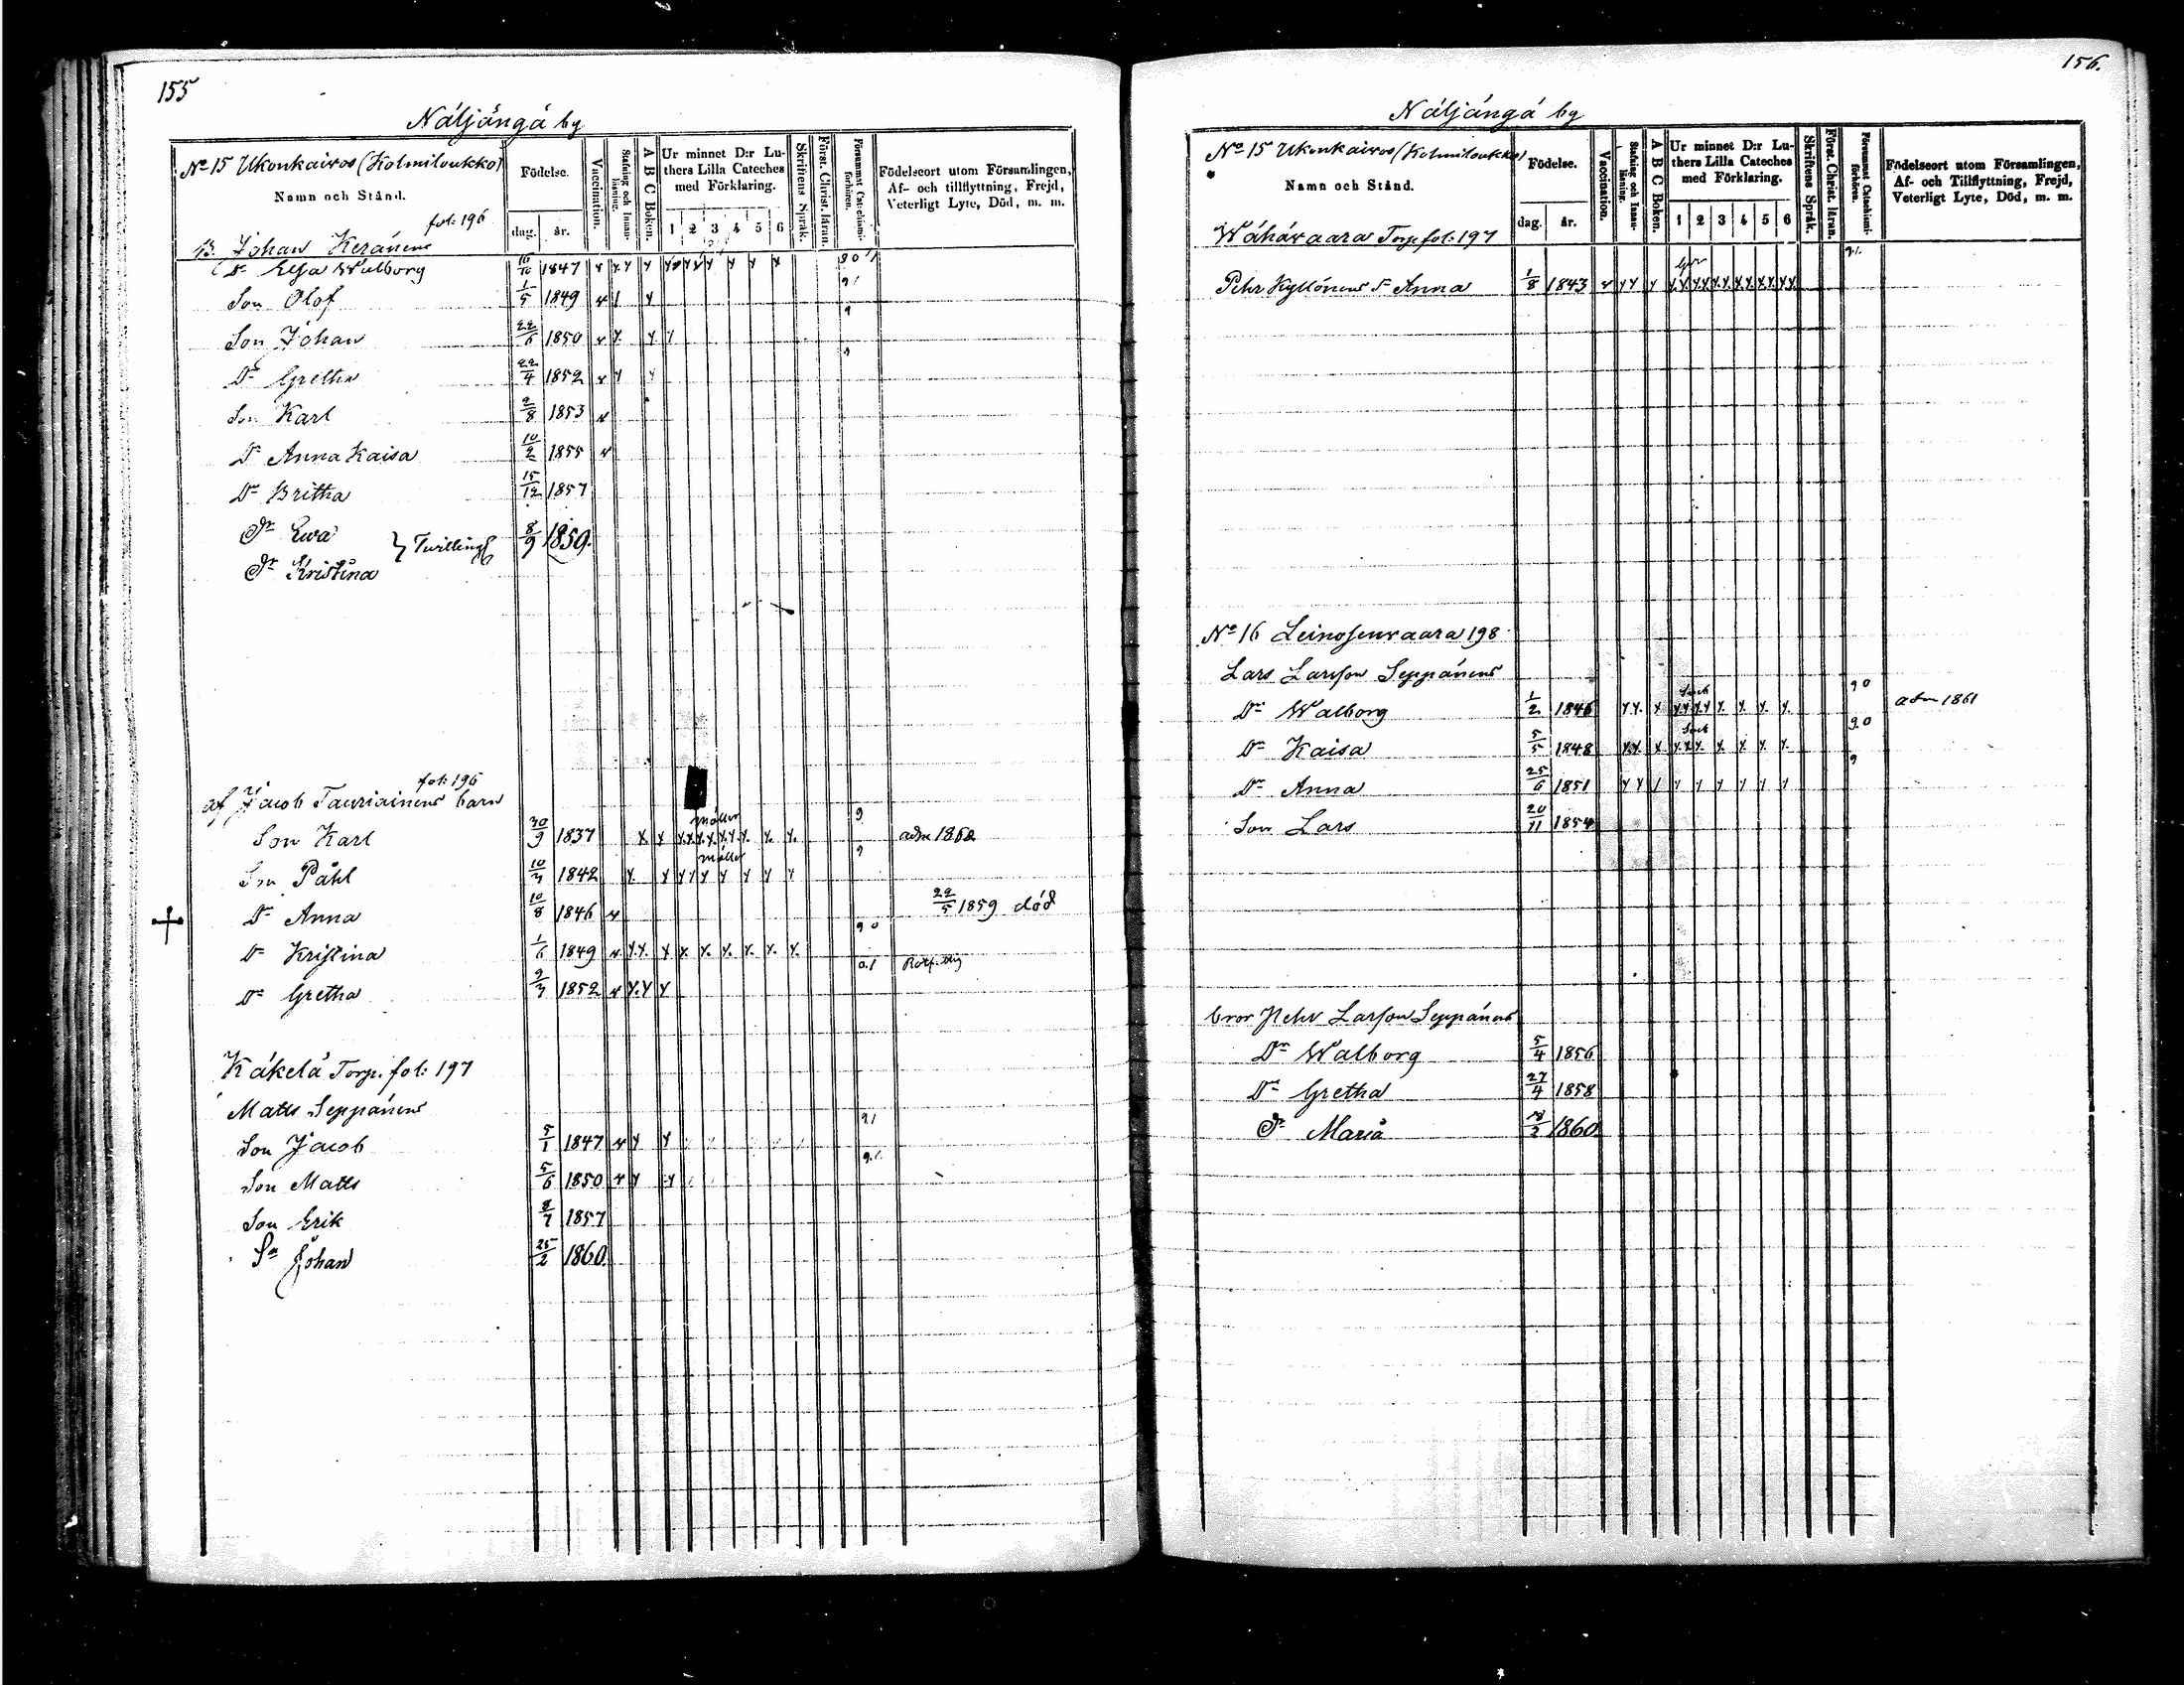 155
Näljängä by
No 15 Ukonkaivos (Kolmiloukko)
Namn och Stånd.
Födelse.
dag. år.
Vaccination.
Stafning och Innanläsning.
A B C Boken.
Ur minnet D:r Luthers Lilla Cateches med Förklaring.
1 2 3 4 5 6
Skriftens Språk.
Först. Christ. läran.
Försummat Catechismiförhören.
Födelseort utom Församlingen, Af- och tillflyttning, Frejd, Veterligt Lyte, Död, m. m.
fol: 196
B. Johan Keränens
Dr Elsa Walborg 1847
Son Olof 1/5 1849
Son Johan 22/6 1850
Dr Gretha 22/4 1852
Son Karl 2/8 1853
Dr Anna Kaisa 10/2 1855
Dr Britha 15/12 1857
Dr Ewa } Twilling 8/9 1859.
Dr Kristina
fol: 196
af Jacob Tauriainens barn
Son Karl 30/9 1837 Möller 9 adm 1862
Son Påhl 1842 Möller 9
Dr Anna 10/8 1846 22/5 1859 död
Dr Kristina 1/6 1849 90
Dr Gretha 1852
Käkelä Torp. fol: 197
Matts Seppänens
Son Jacob 5/1 1847 91
Son Matts 5/6 1850
Son Erik 1857
Sn Johan 25/2 1860.
156.
Näljängä by
No 15 Ukonkaivos (Kolmiloukko)
Namn och Stånd.
Födelse.
dag. år.
Vaccination.
Stafning och Innanläsning.
A B C Boken.
Ur minnet D:r Luthers Lilla Cateches med Förklaring.
1 2 3 4 5 6
Skriftens Språk.
Först. Christ. läran.
Försummat Catechismiförhören.
Födelseort utom Församlingen, Af- och Tillflyttning, Frejd, Veterligt Lyte, Död, m. m.
Wähävaara Torp fol: 197
Pehr Kyllönens Dr Anna 1/8 1843
No 16 Leinosenvaara 198
Lars Larsson Seppänens
Dr Walborg 1/2 1846 90 adm 1861
Dr Kaisa 5/5 1848 90
Dr Anna 25/6 1851 9
Son Lars 20/11 1854
bror Pehr Larsson Seppänens
Dr Walborg 5/4 1856
Dr Gretha 27/4 1858
Dr Maria 1860